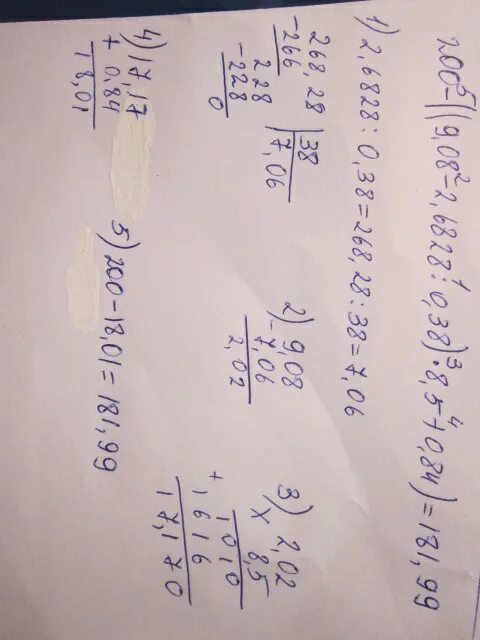 200-((9,08-2,6828:0,38)·8,5+0,84)=181,99
5 2 1 3 4
1) 2,6828:0,38=268,28:38=7,06
268,28 | 38
-266 | 7,06
228
-228
0
2) 9,08
- 7,06
2,02
3) 2,02
x 8,5
1010
+ 1616
17,170
4) 17,17
+ 0,84
18,01
5) 200-18,01=181,99